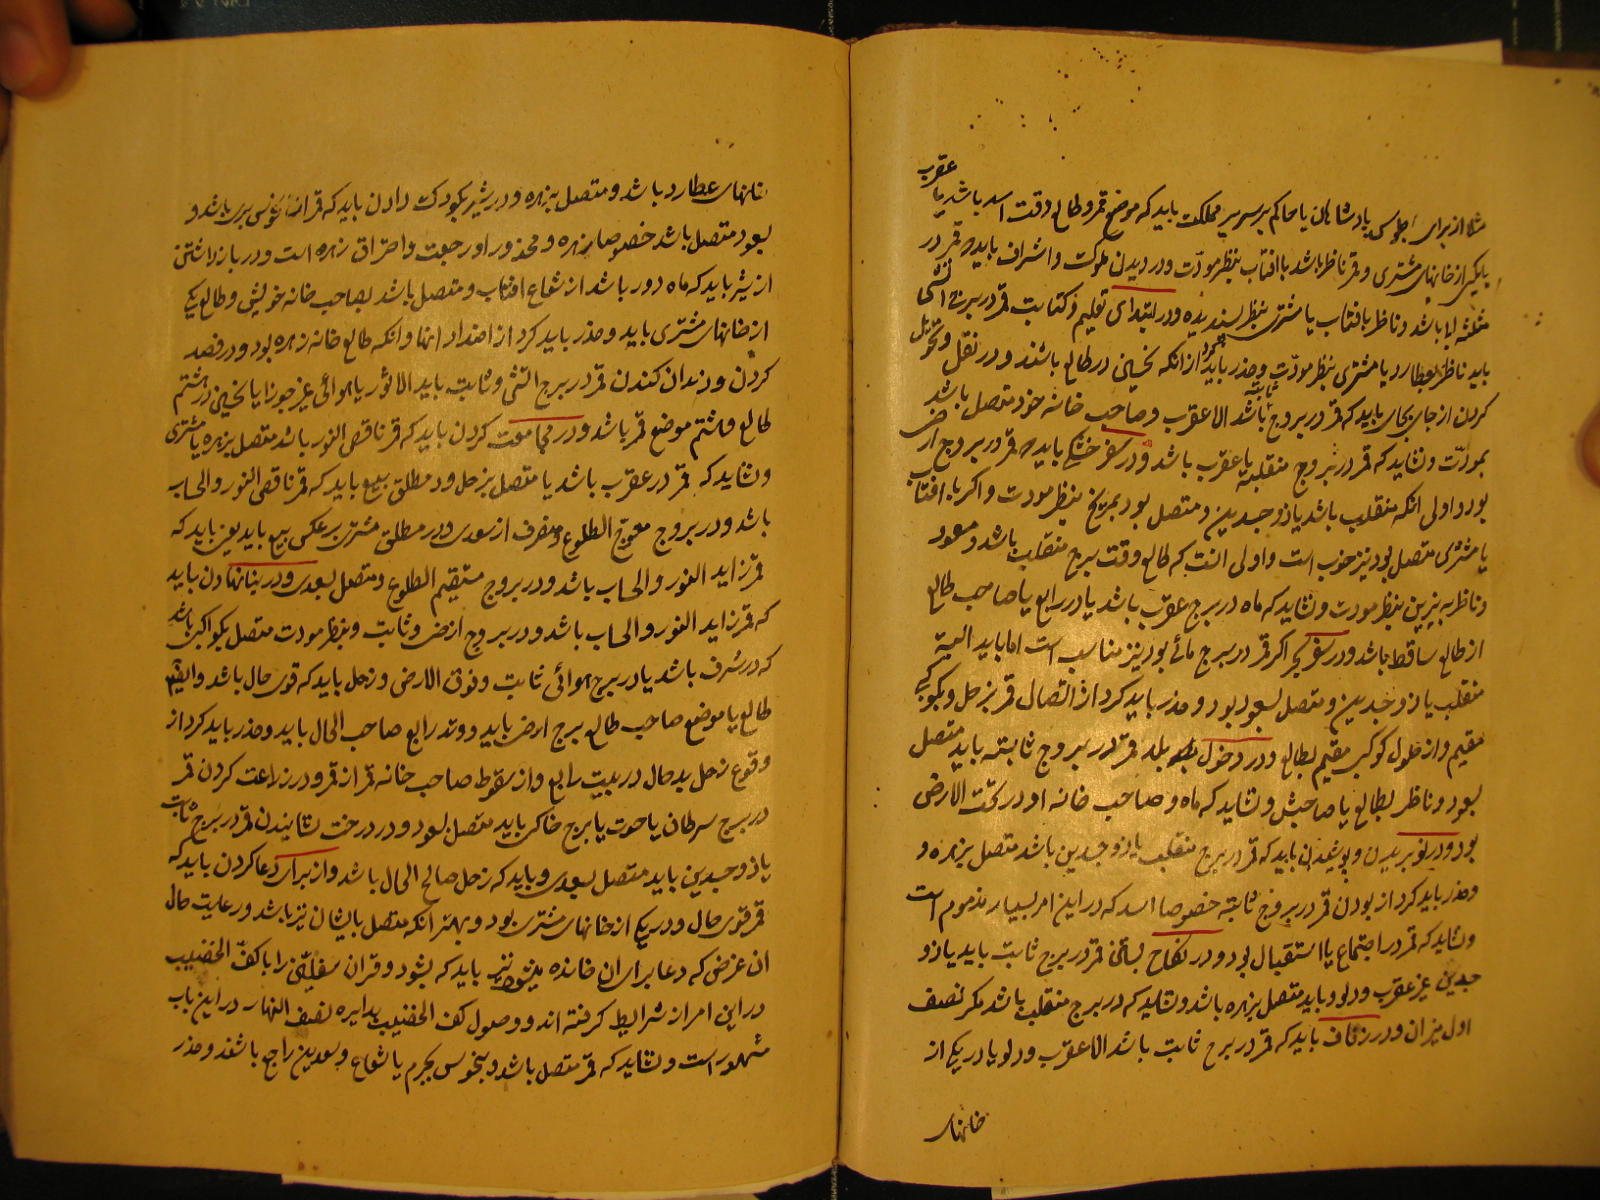 عقرب
مثلا از برای جلوس پادشاهان یا حاکم بر سریر مملکت باید که موضع قمر و طالع وقت اسد باشد یا
یا یکی از خانهای مشتری و قمر ناظر باشد با افتاب بنظر مودت و در دیدن ملوک و اشراف باید که قمر در
مثلثه باشد و ناظر بافتاب یا مشتری بنظر پسندیده و در ابتدای تعلیم و کتابت قمر در برج
باید ناظر بعطارد یا مشتری بنظر مودّت و حذر باید کرد از انکه نحسی در طالع باشد و در نقل و تحویل
کردن از جای بجای باید که قمر در بروج ثابته باشد الا عقرب و صاحب خانه خود متصل باشد
بمودّت و نشاید که قمر در بروج منقلبه یا عقرب باشد و در سفر خشکی باید که قمر در بروج ارضی
بود و اولی انکه منقلب باشد یا ذو جسدین و متصل بود بمریخ بنظر مودت و اکر با افتاب
یا مشتری متصل بود نیز خوب است و اولی انست که طالع وقت برج منقلب باشد و مسعود
و ناظر به نیرین بنظر مودت و نشاید که ماه در برج عقرب باشد یا در رابع یا صاحب طالع
از طالع ساقط باشد و در سفر بحر اکر قمر در برج مائی بود نیز مناسب است اما باید البته
منقلب یا ذو جسدین و متصل بسعود بود و حذر باید کرد از اتصال قمر بزحل و بکوکبی
مقیم و از حلول کوکب مقیم بطالع و در دخول بلد قمر در بروج ثابته باید متصل
بسعود و ناظر بطالع یا صاحبش و نشاید که ماه و صاحب خانه او در تحت الارض
بود و در نو بریدن و پوشیدن باید که قمر در برج منقلب یا ذو جسدین باشد متصل بزهره و
و حذر باید کرد از بودن قمر در بروج ثابته خصوصا اسد که در این امر بسیار مذموم است
و نشاید که قمر در اجتماع یا استقبال بود و در نکاح بستن قمر در برج ثابت باید یا ذو
جسدین غیر عقرب و دلو و باید متصل بزهره باشد و نشاید که در برج منقلب باشد مکر نصف
اول میزان و در زفاف باید که قمر در برج ثابت باشد الا عقرب و دلو یا در یکی از
خانهای
خانهای عطارد باشد و متصل بزهره و در شیر بکودک دادن باید که قمر از بری باشد و
بسعود متصل باشد خصوصا زهره و محذور او رجعت و احتراق زهره است و در باز داشتن
از شیر باید که ماه دور باشد از شعاع افتاب و متصل باشد بصاحب خانه خویش و طالع یکی
از خانهای مشتری باید و حذر باید کرد از اضداد اینها و انکه طالع خانه زهره بود و در فصد
کردن و دندان کندن قمر در برج اتشی و ثابت باید الا ثور یا هوائی غیر جوزا یا نحسی در هشتم
طالع و هشتم موضع قمر باشد و در مجامعت کردن باید که قمر ناقص النور باشد متصل بزهره یا مشتری
و نشاید که قمر در عقرب باشد یا متصل بزحل و در مطلق بیع باید که قمر ناقص النور و الحساب
باشد و در بروج معوج الطلوع و منصرف از سعدی و در مطلق مشتری برعکس بیع باید یعنی باید که
قمر زاید النور و الحساب باشد و در بروج مستقیم الطلوع و متصل بسعدی و در بنا نهادن باید
که قمر زاید النور و الحساب باشد و در بروج ارضی و ثابت و بنظر مودت متصل بکواکبی باشد
که در شرف باشد یا در برج هوائی ثابت و فوق الارض و زحل باید که قوی حال باشد و ایضا
طالع یا موضع صاحب طالع برج ارضی باید و وتد رابع صاحب الحال باید و حذر باید کرد از
وقوع زحل بدحال در بیت رابع و از سقوط صاحب خانه قمر از قمر و در زراعت کردن قمر
در برج سرطان یا حوت یا برج خاکی باید متصل بسعود و در درخت نشانیدن قمر در برج ثابت
یا ذو جسدین باید متصل بسعدی و باید که زحل صالح الحال باشد و از برای دعا کردن باید که
قمر قوی حال و در یکی از خانهای مشتری بود و بهتر انکه متصل بایشان نیز باشد و رعایت حال
ان غرض که دعا برای ان خوانده میشود نیز باید که بشود و قران مشتری را با کف الخضیب
در این امر از شرایط کرفته اند و وصول کف الخضیب بدایره نصف النهار در این باب
مشهور است و نشاید که قمر متصل باشد و بنحوس بجرم یا شعاع و سعدین راجع باشند و حذر